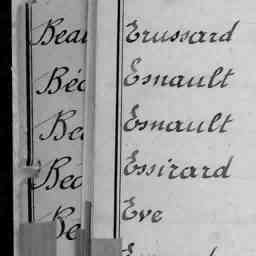 Beau Erussard
Béc Esnault
Bec Esnault
Bec Essirard
Be Eve